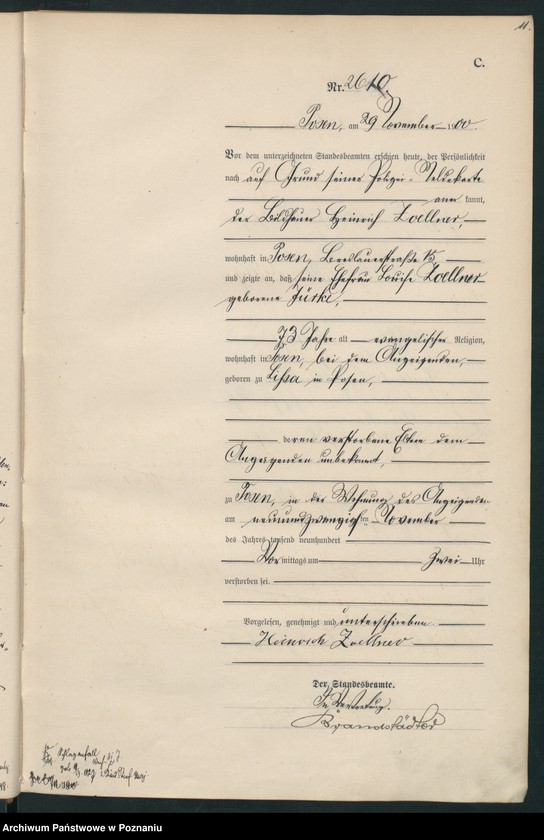 11.
C.
Nr. 2610.
Posen, am 29 November 1900.
Vor dem unterzeichneten Standesbeamten erschien heute, der Persönlichkeit
nach auf Grund seiner Polizei-Meldekarte
anerkannt,
der Bildhauer Heinrich Zoellner,
wohnhaft in Posen, Breslauerstraße 15,
und zeigte an, daß seine Ehefrau Louise Zoellner
geborene Jürke,
73 Jahre alt evangelischer Religion,
wohnhaft in Posen, bei dem Anzeigenden,
geboren zu Lissa in Posen,
deren verstorbene Eltern dem
Anzeigenden unbekannt,
zu Posen, in der Wohnung des Anzeigenden
am neunundzwanzigsten November
des Jahres tausend neunhundert
Vormittags um zwei Uhr
verstorben sei.
Vorgelesen, genehmigt und unterschrieben
Heinrich Zoellner
Der Standesbeamte.
In Vertretung.
Brandstädter
Schlaganfall
Archiwum Państwowe w Poznaniu